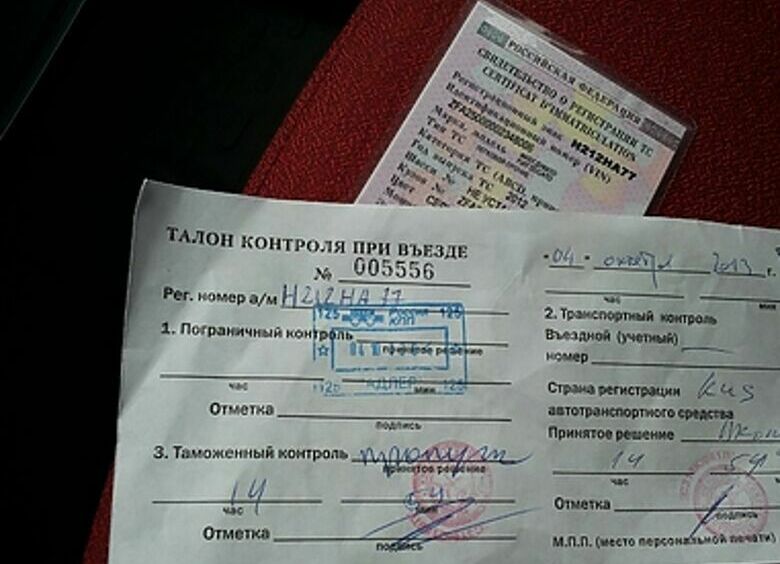 РОССИЙСКАЯ ФЕДЕРАЦИЯ
СВИДЕТЕЛЬСТВО О РЕГИСТРАЦИИ ТС
CERTIFICAT D'IMMATRICULATION
Регистрационный знак Н212НА77
Идентификационный номер (VIN)
Марка, модель
Тип ТС
Категория ТС (ABCD, приц
Год выпуска ТС 2012
Шасси № НЕ УСТА
Кузов №
Цвет
ТАЛОН КОНТРОЛЯ ПРИ ВЪЕЗДЕ
№ 005556
Рег. номер а/м Н212НА 77
125 Россия 125
КПП
АДЛЕР
125 125
1. Пограничный контроль
принятое решение
час мин
Отметка
подпись
3. Таможенный контроль пропуск
принятое решение
14 54
час мин
Отметка
подпись
04 октября 2013 г.
час мин
2. Транспортный контроль
Въездной (учетный)
номер
Страна регистрации
автотранспортного средства
Принятое решение
14 54
час
Отметка
подпись
М.П.П. (место персональной печати)